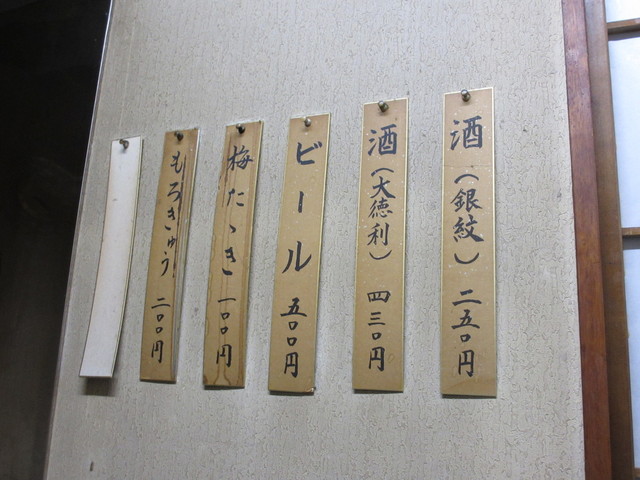 酒（銀紋）二五〇円
酒（大徳利）四三〇円
ビール 五〇〇円
梅たゝき 一〇〇円
もろきゅう 二〇〇円